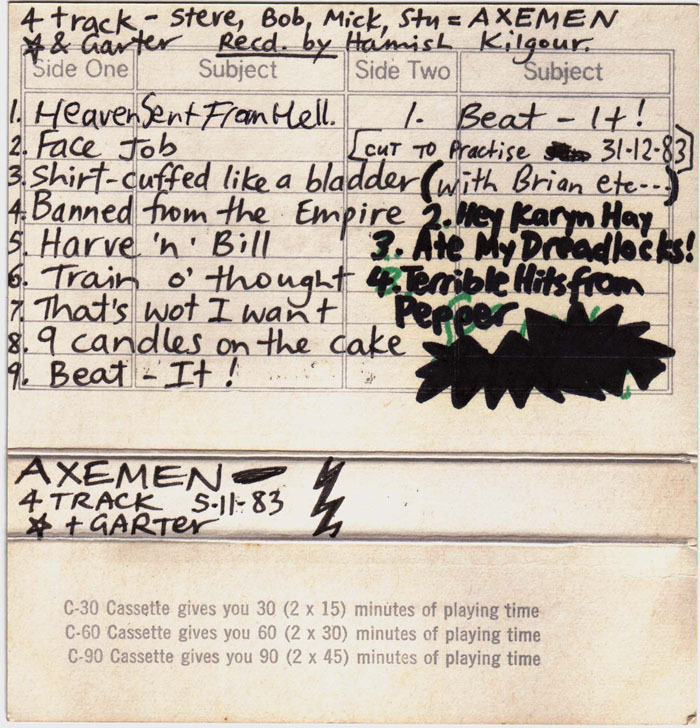 4 track - Steve, Bob, Mick, Stu = AXEMEN
☆ & Garter Recd. by Hamish Kilgour.
Side One Subject Side Two Subject
1. Heaven Sent From Hell.
2. Face Job
3. Shirt-cuffed like a bladder
4. Banned from the Empire
5. Harve 'n' Bill
6. Train o' thought
7. That's wot I want
8. 9 candles on the cake
9. Beat - It!
1. Beat - It!
[CUT TO Practise 31-12-83]
(with Brian etc---)
2. Hey Karyn Hay
3. Ate My Dreadlocks!
4. Terrible Hits from
Pepper
AXEMEN
4 TRACK 5-11-83
☆ + GARTER
C-30 Cassette gives you 30 (2 x 15) minutes of playing time
C-60 Cassette gives you 60 (2 x 30) minutes of playing time
C-90 Cassette gives you 90 (2 x 45) minutes of playing time